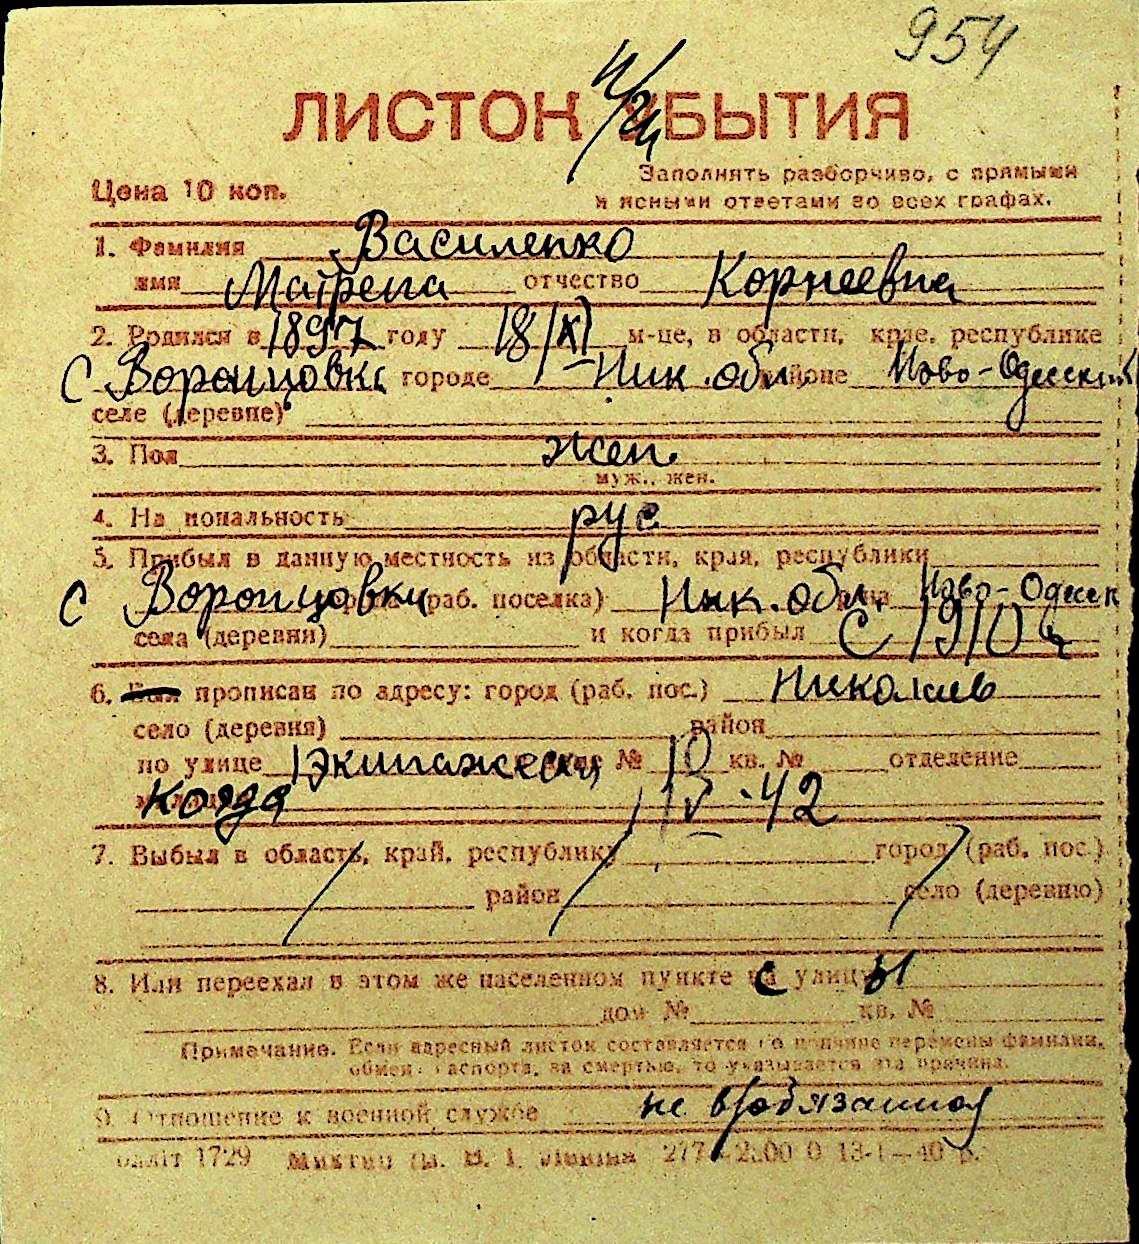 954
ЛИСТОК УБЫТИЯ
Цена 10 коп.
Заполнять разборчиво, с прямыми
и ясными ответами во всех графах.
1. Фамилия Василенко
имя Матрена отчество Корнеевна
2. Родился в 1897 году 18/XI м-це, в области, крае, республике
С Воронцовка городе Ник. обл. районе Ново-Одесский
селе (деревне)
3. Пол жен.
муж., жен.
4. Национальность рус
5. Прибыл в данную местность из области, края, республики
С Воронцовки города (раб. поселка) Ник. обл. р-на Ново-Одесск
села (деревни) и когда прибыл С 1910 г
6. Был прописан по адресу: город (раб. пос.) Николаев
село (деревня) район
по улице 1 Экипажеская дом № 10 кв. № отделение
милиции когда 1/V-42
7. Выбыл в область, край, республику город (раб. пос.)
район село (деревню)
8. Или переехал в этом же населенном пункте с улицы
дом № кв. №
Примечание. Если адресный листок составляется по причине перемены фамилии,
обмена паспорта, за смертью, то указывается эта причина.
9. Отношение к военной службе не в/обязанная
1729 277 — 2500 0 13-1—40 р.